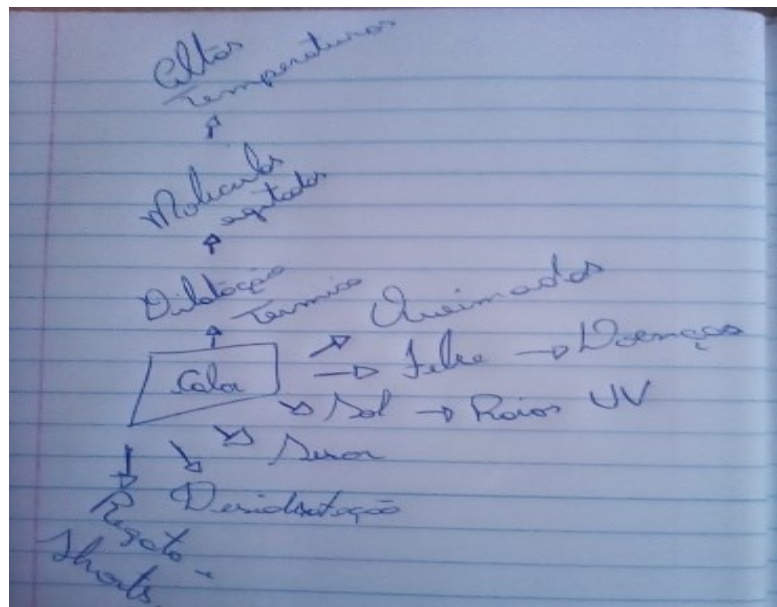 Altas
Temperaturas
Moléculas
agitadas
Dilatação
Térmica
Queimadas
Calor
Febre → Doenças
Sol → Raios UV
Suor
Desidratação
Regata -
Shorts.